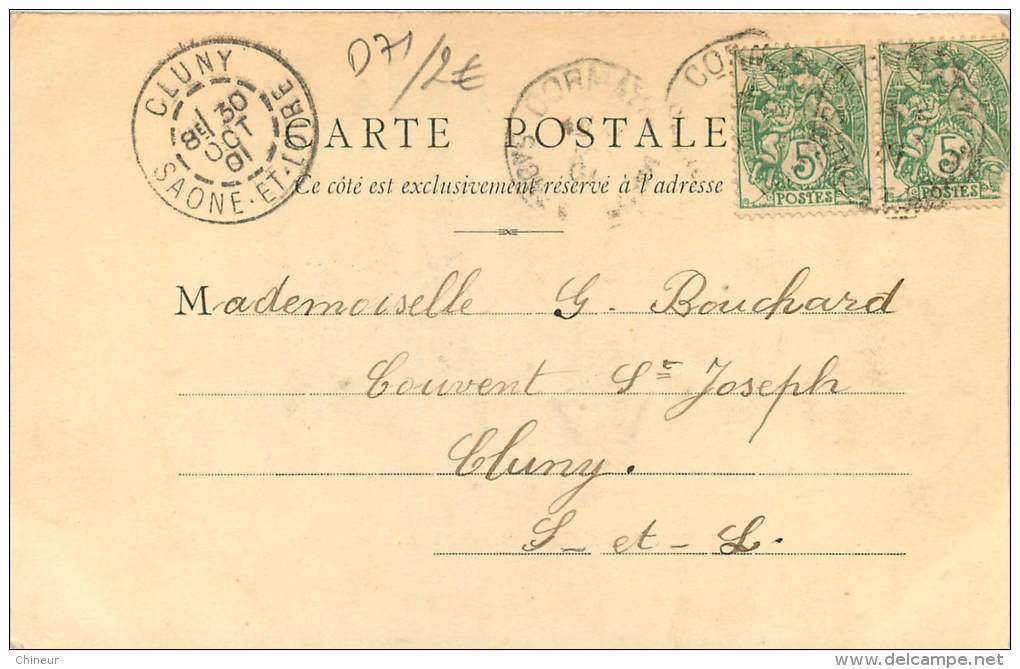 CLUNY
8E 30
OCT
01
SAONE-ET-LOIRE
D71/2€
CORMA
CARTE POSTALE
Ce côté est exclusivement réservé à l'adresse
5 5
POSTES POSTES
Mademoiselle G. Bouchard
Couvent St Joseph
Cluny.
S- et - L.
Chineur
delcampe.net